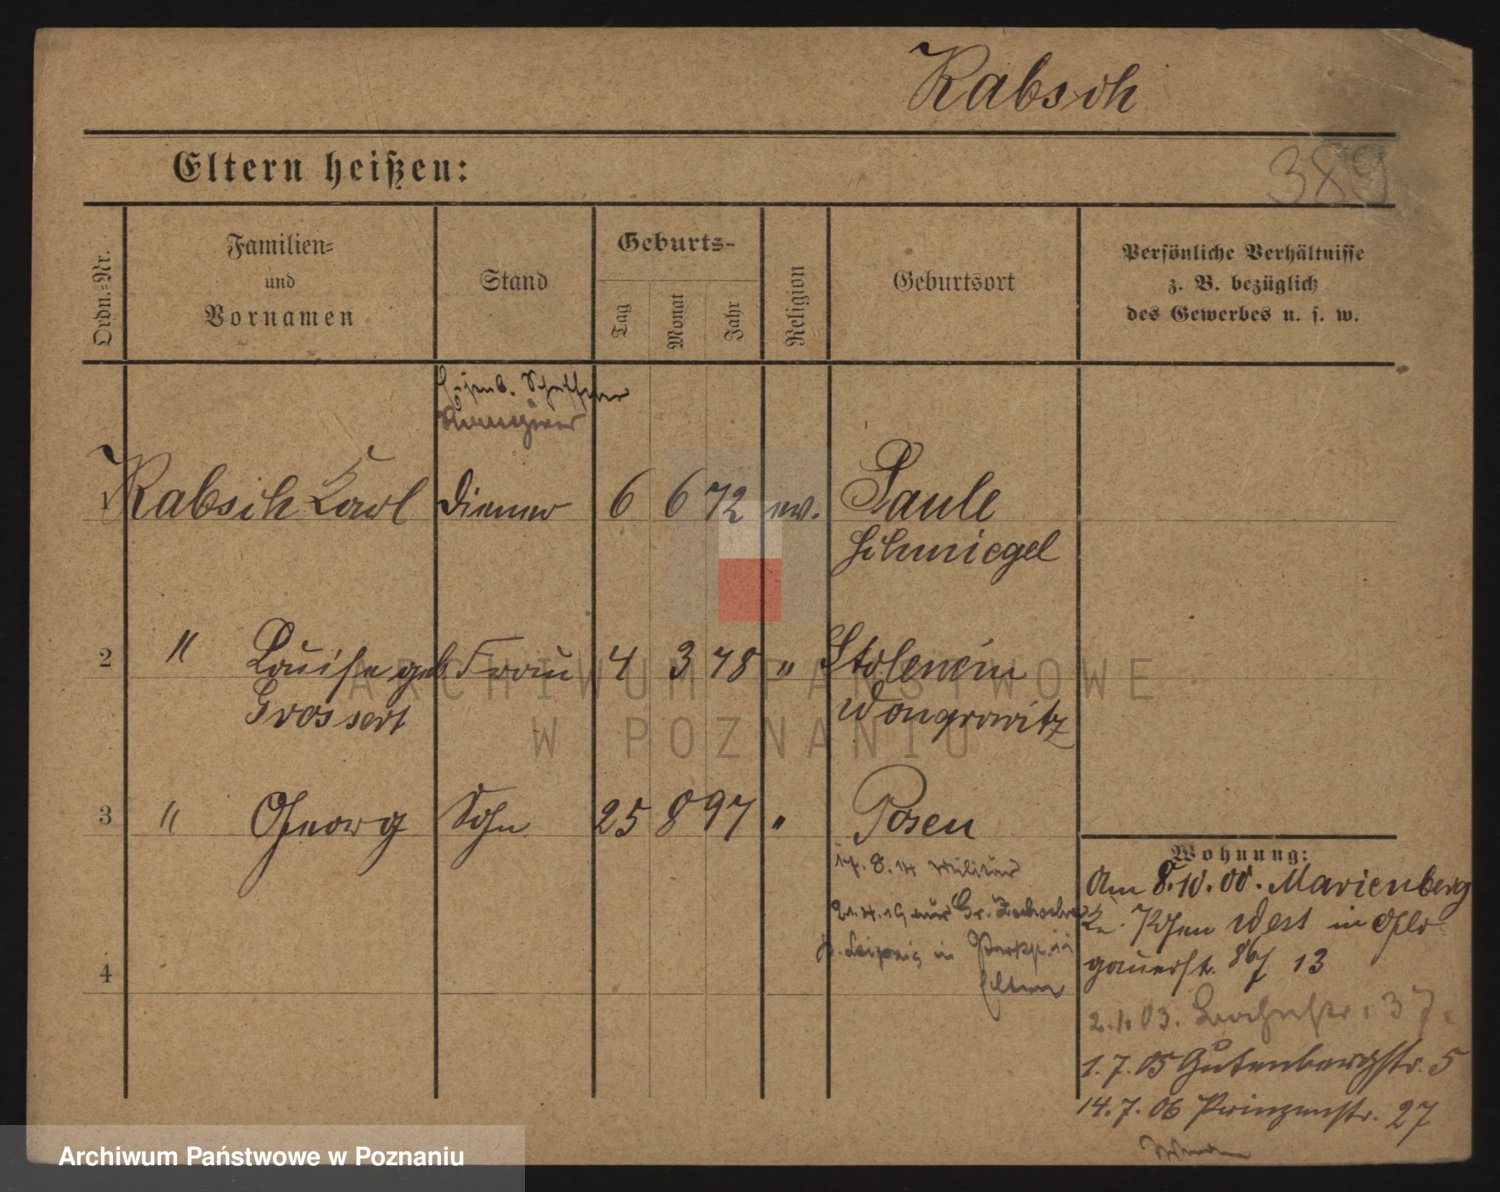 Rabsch
389
Eltern heißen:
Ordn.-Nr.
Familien-
und
Vornamen
Stand
Geburts-
Tag
Monat
Jahr
Religion
Geburtsort
Persönliche Verhältnisse
z. B. bezüglich
des Gewerbes u. s. w.
1 Rabsch Karl Diener 6 6 72 ev. Paule
Schmiegel
2 " Louise geb. Frau 4 3 78 " Stolenčin
Grossert Wongrowitz
3 " Georg Sohn 25 8 97 " Posen
8. 14 Militär
21.4.19
Leipzig in
Eltern
4
Wohnung:
Am 8.10.00. Marienberg
Kr. Posen West in Glo-
gauerstr. 86/ 13
2.1.03. 37.
1.7.05 Gutenbergstr. 5
14.7.06 Prinzenstr. 27
ARCHIWUM PAŃSTWOWE
W POZNANIU
Archiwum Państwowe w Poznaniu